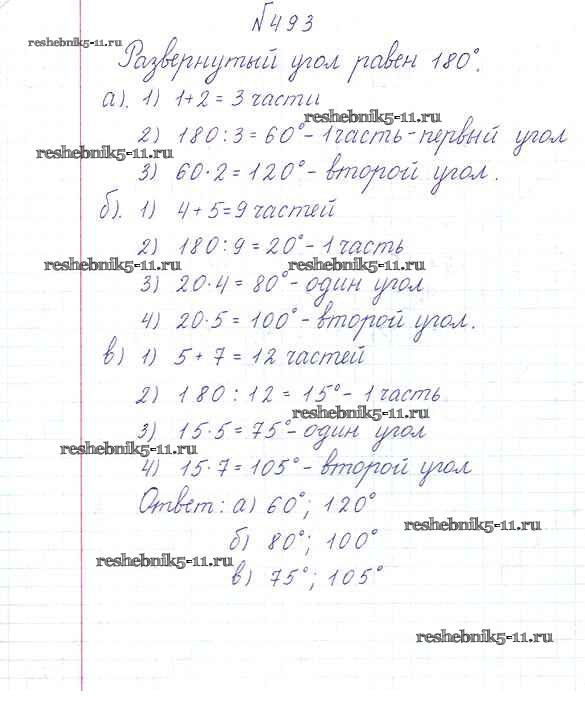 №493
reshebnik5-11.ru
Развернутый угол равен 180°.
а). 1) 1+2=3 части
reshebnik5-11.ru
2) 180:3=60°-1часть-первый угол
reshebnik5-11.ru
3) 60·2=120°-второй угол.
б). 1) 4+5=9 частей
2) 180:9=20°-1 часть
reshebnik5-11.ru reshebnik5-11.ru
3) 20·4=80°-один угол
4) 20·5=100°-второй угол.
в) 1) 5+7=12 частей
2) 180:12=15°-1 часть
reshebnik5-11.ru
3) 15·5=75°-один угол
reshebnik5-11.ru
4) 15·7=105°-второй угол
Ответ: а) 60°; 120°
reshebnik5-11.ru
б) 80°; 100°
reshebnik5-11.ru
в) 75°; 105°
reshebnik5-11.ru